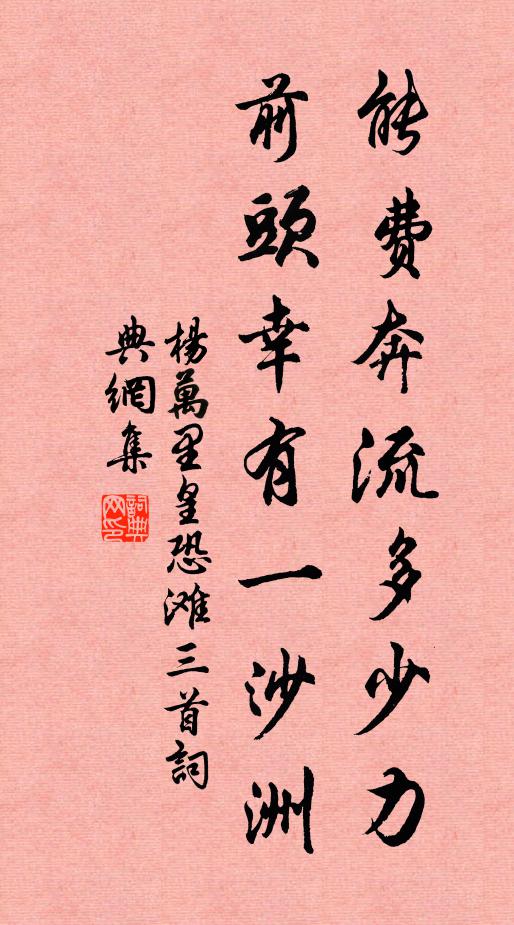 能費奔流多少力
前頭幸有一沙洲
楊萬里皇恐滩三首詞
典網集
詞典网印